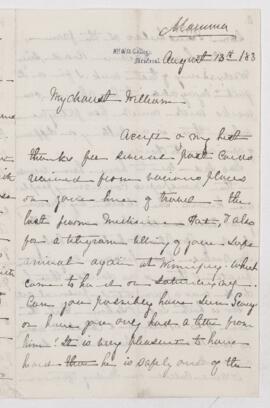 Mamma
August 13th /83
My dearest William
Accept of my best
thanks for several post cards
received from various places
on your line of travel - the
last from Medicine Hat, & also
for a telegram telling of your safe
arrival again at Winnipeg. Which
came to hand on Saturday
Can you possibly have seen
or have you only had a letter from
him? It is very pleasant to have
heard he is safely out of the